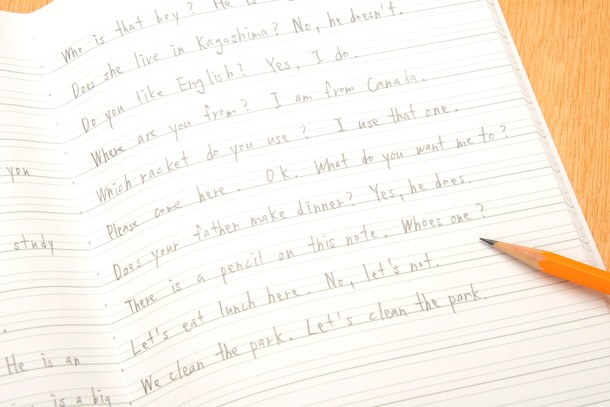 Who is that boy? He is
Does she live in Kagoshima? No, he doesn't.
Do you like English? Yes, I do.
Where are you from? I am from Canada.
Which racket do you use? I use that one.
Please come here. OK. What do you want me to?
Does your father make dinner? Yes, he does.
There is a pencil on this note. Whoes one?
Let's eat lunch here. No, let's not.
We clean the park. Let's clean the park.
you
study
He is an
is a big